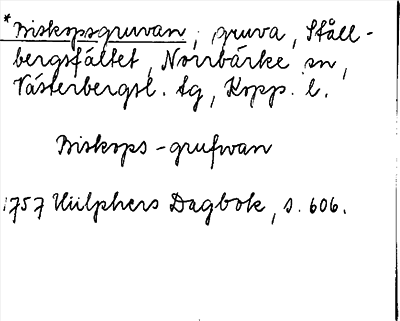 *Biskopsgruvan, gruva, Ställ-
bergsfältet, Norrbärke sn,
Västerbergsl. tg, Kopp. l.
Biskops-grufwan
1757 Hülphers Dagbok, s. 606.